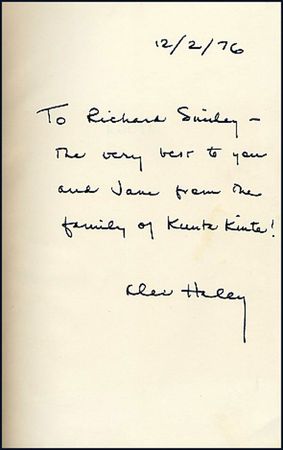 12/2/76
To Richard Smiley –
the very best to you
and Jane from the
family of Kunta Kinte!
Alex Haley